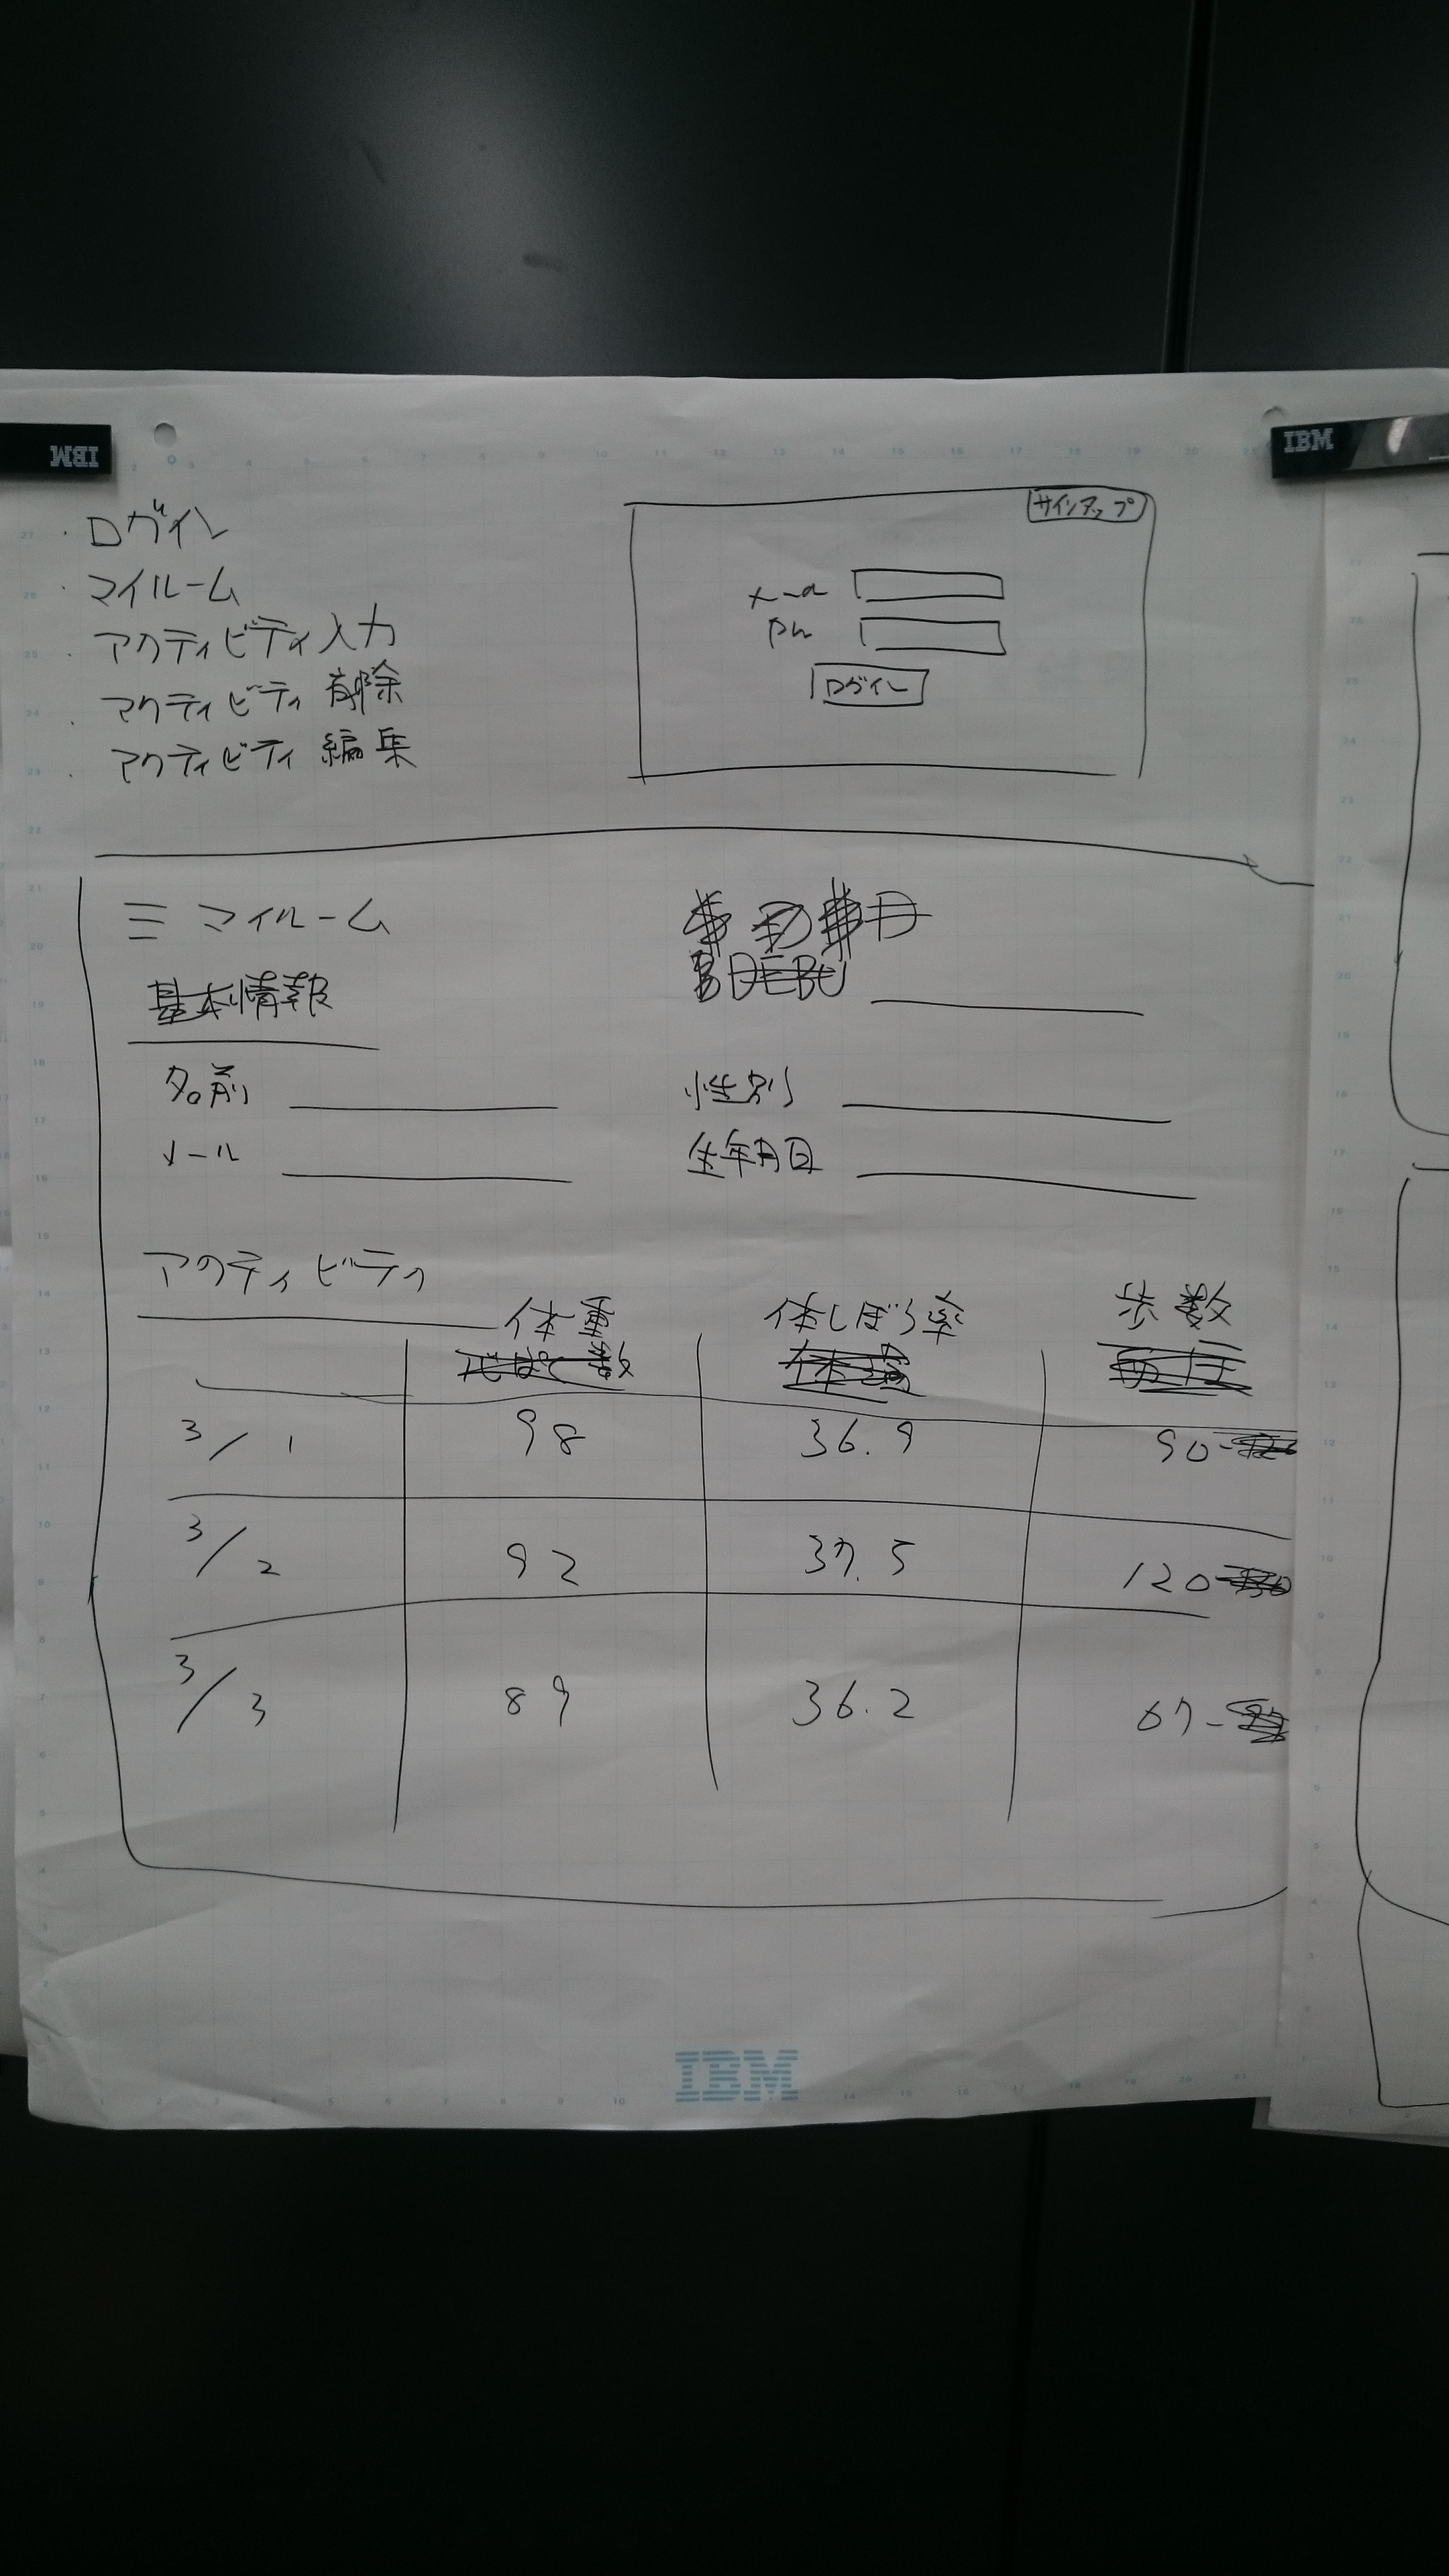 IBM
IBM
・ログイン
・マイルーム
・アクティビティ入力
・アクティビティ削除
・アクティビティ編集
サインアップ
メール
PW
ログイン
三 マイルーム
基本情報
名前
性別
メール
生年月日
アクティビティ
体重
体しぼう率
歩数
3/1
98
36.9
90
3/2
92
37.5
120
3/3
89
36.2
67
IBM